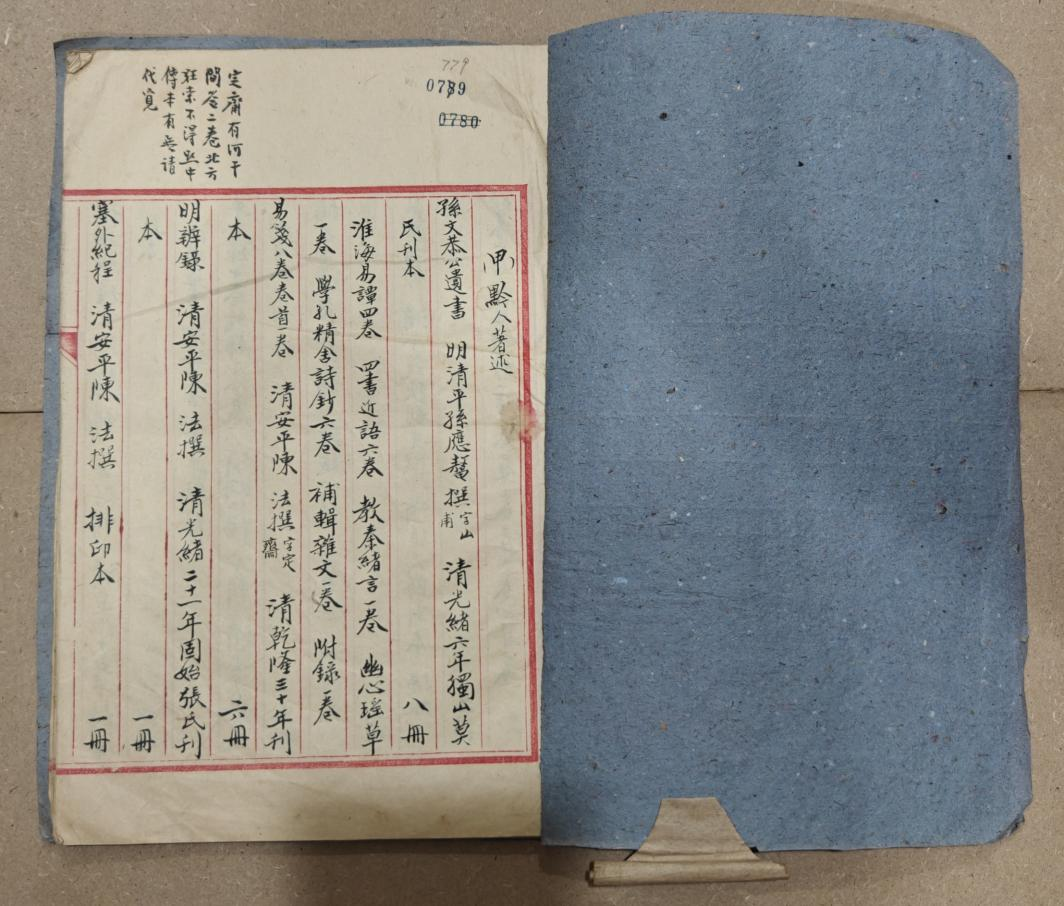 779
0780
定齋有河干
問答二卷北方
狂索不得黔中
傳本有無請
代覓
甲 黔人著述
孫文恭公遺書 明清平孫應鼇撰 字山甫 清光緒六年獨山莫
氏刊本 八冊
淮海易譚四卷 四書近語六卷 教秦緒言一卷 幽心瑶草
一卷 學孔精舍詩鈔六卷 補輯雜文一卷 附錄一卷
易箋八卷卷首一卷 清安平陳 法撰 字定齋 清乾隆三十年刊
本 六冊
明辨錄 清安平陳 法撰 清光緒二十一年固始張氏刊
本 一冊
塞外紀程 清安平陳 法撰 排印本 一冊